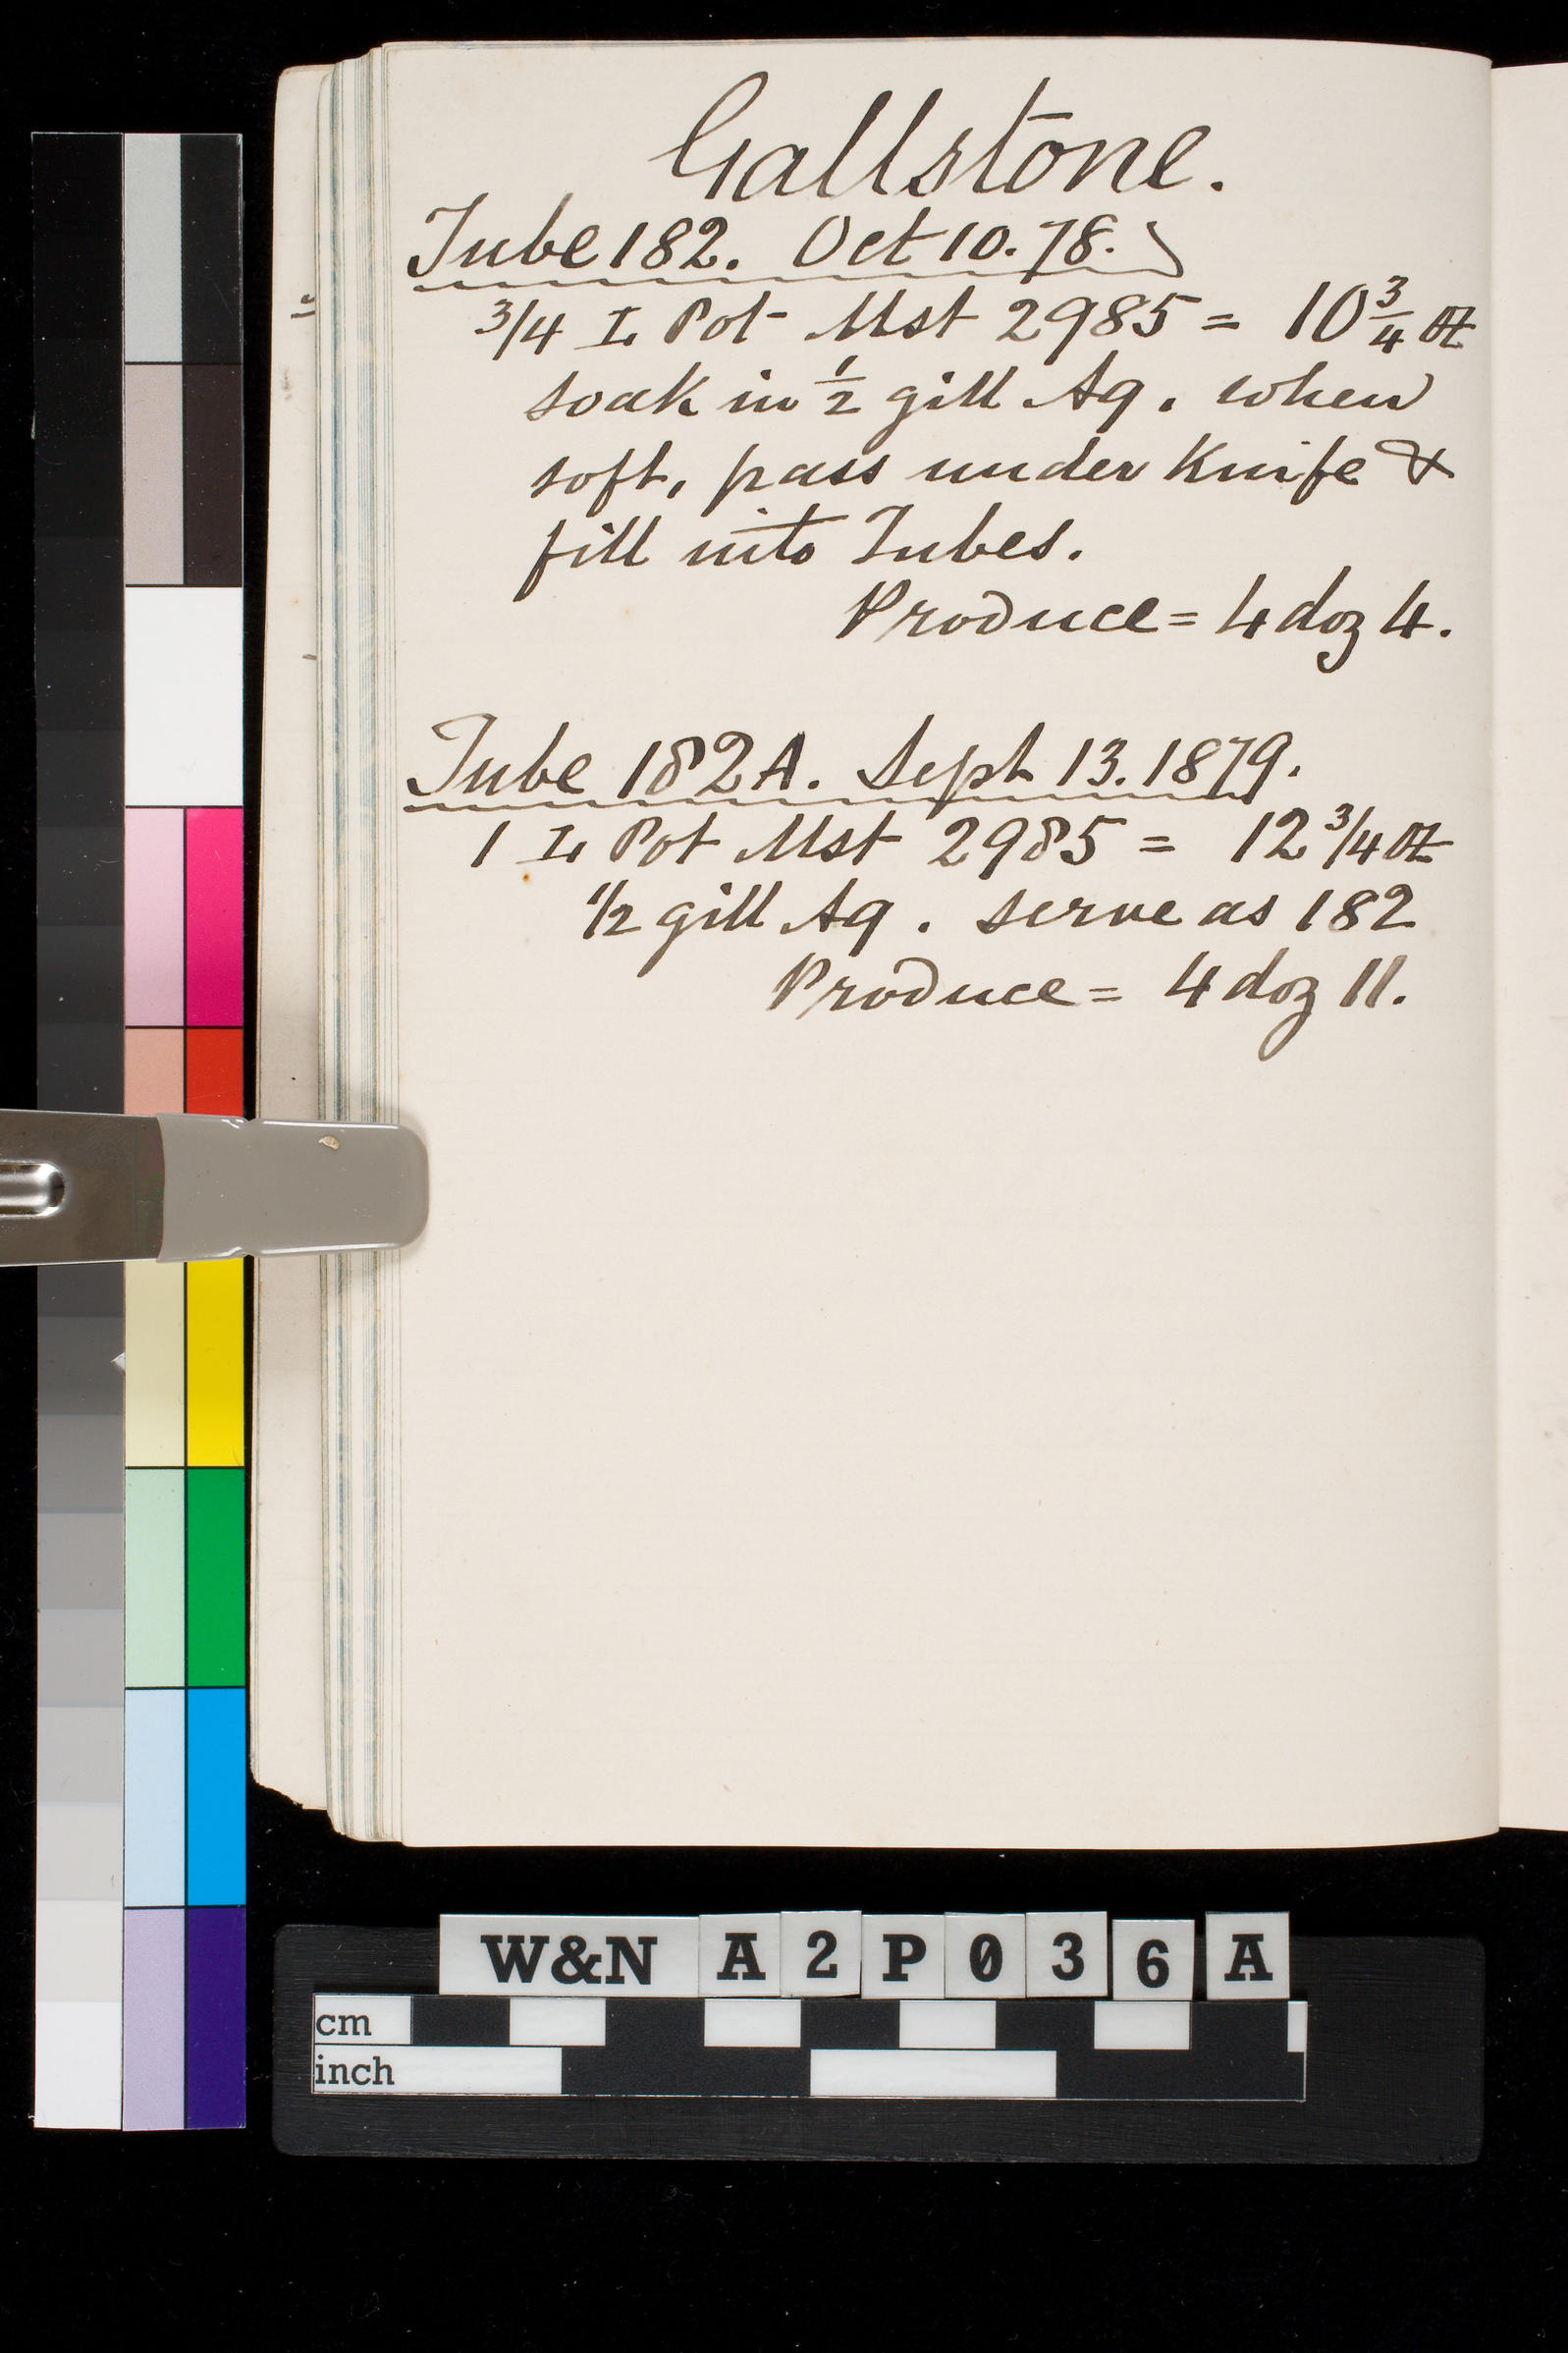 Gallstone.
Tube 182. Oct 10. 78.
3/4 I. Pot Mst 2985 = 10 3/4 oz
soak in 1/2 gill Aq. when
soft, pass under Knife &
fill into Tubes.
Produce = 4 doz 4.
Tube 182A. Sept 13. 1879.
1 I. Pot Mst 2985 = 12 3/4 oz
1/2 gill Aq. serve as 182
Produce = 4 doz 11.
W&N A2P036A
cm
inch